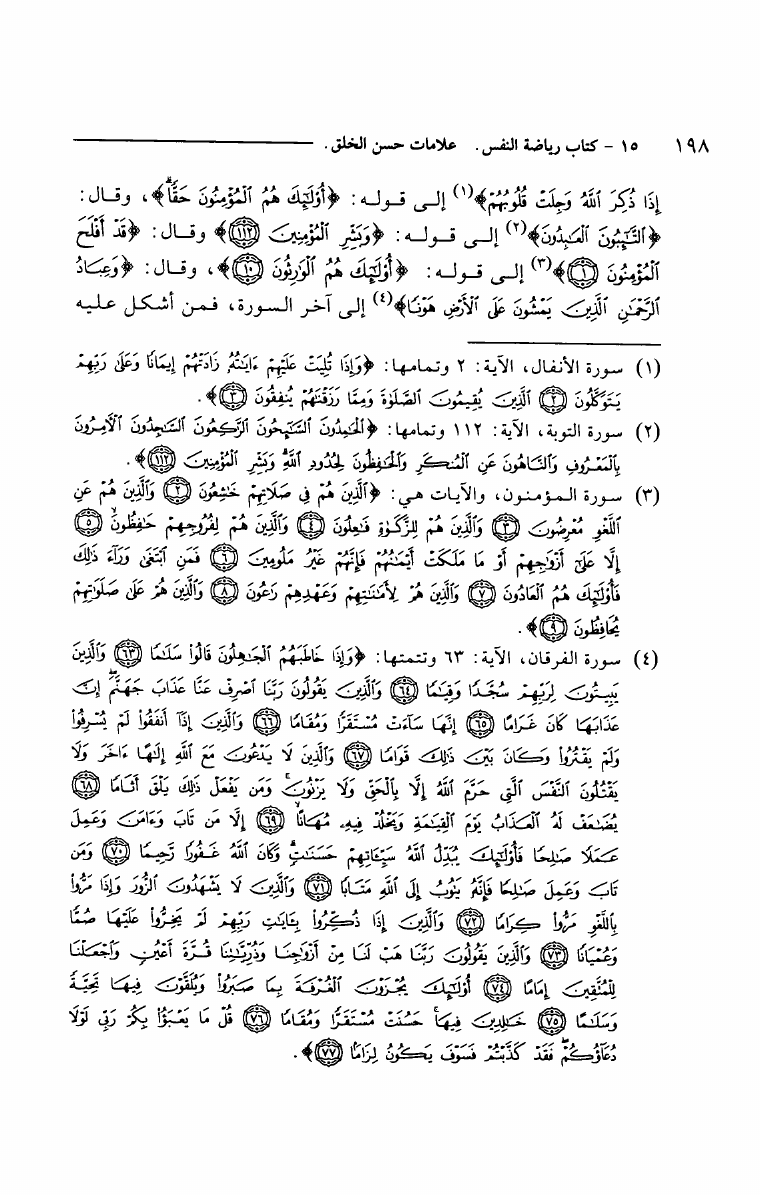 ١٩٨ ١٥ - كتاب رياضة النفس. علامات حسن الخلق.
إِذَا ذُكِرَ ٱللَّهُ وَجِلَتْ قُلُوبُهُمْ﴾(١) إلى قوله: ﴿أُو۟لَٰٓئِكَ هُمُ ٱلْمُؤْمِنُونَ حَقًّا﴾، وقال:
﴿ٱلتَّٰٓئِبُونَ ٱلْعَٰبِدُونَ﴾(٢) إلى قوله: ﴿وَبَشِّرِ ٱلْمُؤْمِنِينَ ١١٢﴾ وقال: ﴿قَدْ أَفْلَحَ
ٱلْمُؤْمِنُونَ ١﴾(٣) إلى قوله: ﴿أُو۟لَٰٓئِكَ هُمُ ٱلْوَٰرِثُونَ ١٠﴾، وقال: ﴿وَعِبَادُ
ٱلرَّحْمَٰنِ ٱلَّذِينَ يَمْشُونَ عَلَى ٱلْأَرْضِ هَوْنًا﴾(٤) إلى آخر السورة، فمن أشكل عليه
(١) سورة الأنفال، الآية: ٢ وتمامها: ﴿وَإِذَا تُلِيَتْ عَلَيْهِمْ ءَايَٰتُهُۥ زَادَتْهُمْ إِيمَٰنًا وَعَلَىٰ رَبِّهِمْ
يَتَوَكَّلُونَ ٢ ٱلَّذِينَ يُقِيمُونَ ٱلصَّلَوٰةَ وَمِمَّا رَزَقْنَٰهُمْ يُنفِقُونَ ٣﴾.
(٢) سورة التوبة، الآية: ١١٢ وتمامها: ﴿ٱلْحَٰمِدُونَ ٱلسَّٰٓئِحُونَ ٱلرَّٰكِعُونَ ٱلسَّٰجِدُونَ ٱلْءَامِرُونَ
بِٱلْمَعْرُوفِ وَٱلنَّاهُونَ عَنِ ٱلْمُنكَرِ وَٱلْحَٰفِظُونَ لِحُدُودِ ٱللَّهِ وَبَشِّرِ ٱلْمُؤْمِنِينَ ١١٢﴾.
(٣) سورة المؤمنون، والآيات هي: ﴿ٱلَّذِينَ هُمْ فِى صَلَاتِهِمْ خَٰشِعُونَ ٢ وَٱلَّذِينَ هُمْ عَنِ
ٱللَّغْوِ مُعْرِضُونَ ٣ وَٱلَّذِينَ هُمْ لِلزَّكَوٰةِ فَٰعِلُونَ ٤ وَٱلَّذِينَ هُمْ لِفُرُوجِهِمْ حَٰفِظُونَ ٥
إِلَّا عَلَىٰٓ أَزْوَٰجِهِمْ أَوْ مَا مَلَكَتْ أَيْمَٰنُهُمْ فَإِنَّهُمْ غَيْرُ مَلُومِينَ ٦ فَمَنِ ٱبْتَغَىٰ وَرَآءَ ذَٰلِكَ
فَأُو۟لَٰٓئِكَ هُمُ ٱلْعَادُونَ ٧ وَٱلَّذِينَ هُمْ لِأَمَٰنَٰتِهِمْ وَعَهْدِهِمْ رَٰعُونَ ٨ وَٱلَّذِينَ هُمْ عَلَىٰ صَلَوَٰتِهِمْ
يُحَافِظُونَ ٩﴾.
(٤) سورة الفرقان، الآية: ٦٣ وتتمتها: ﴿وَإِذَا خَاطَبَهُمُ ٱلْجَٰهِلُونَ قَالُوا۟ سَلَٰمًا ٦٣ وَٱلَّذِينَ
يَبِيتُونَ لِرَبِّهِمْ سُجَّدًا وَقِيَٰمًا ٦٤ وَٱلَّذِينَ يَقُولُونَ رَبَّنَا ٱصْرِفْ عَنَّا عَذَابَ جَهَنَّمَ إِنَّ
عَذَابَهَا كَانَ غَرَامًا ٦٥ إِنَّهَا سَآءَتْ مُسْتَقَرًّا وَمُقَامًا ٦٦ وَٱلَّذِينَ إِذَآ أَنفَقُوا۟ لَمْ يُسْرِفُوا۟
وَلَمْ يَقْتُرُوا۟ وَكَانَ بَيْنَ ذَٰلِكَ قَوَامًا ٦٧ وَٱلَّذِينَ لَا يَدْعُونَ مَعَ ٱللَّهِ إِلَٰهًا ءَاخَرَ وَلَا
يَقْتُلُونَ ٱلنَّفْسَ ٱلَّتِى حَرَّمَ ٱللَّهُ إِلَّا بِٱلْحَقِّ وَلَا يَزْنُونَ وَمَن يَفْعَلْ ذَٰلِكَ يَلْقَ أَثَامًا ٦٨
يُضَٰعَفْ لَهُ ٱلْعَذَابُ يَوْمَ ٱلْقِيَٰمَةِ وَيَخْلُدْ فِيهِۦ مُهَانًا ٦٩ إِلَّا مَن تَابَ وَءَامَنَ وَعَمِلَ
عَمَلًا صَٰلِحًا فَأُو۟لَٰٓئِكَ يُبَدِّلُ ٱللَّهُ سَيِّـَٔاتِهِمْ حَسَنَٰتٍ وَكَانَ ٱللَّهُ غَفُورًا رَّحِيمًا ٧٠ وَمَن
تَابَ وَعَمِلَ صَٰلِحًا فَإِنَّهُۥ يَتُوبُ إِلَى ٱللَّهِ مَتَابًا ٧١ وَٱلَّذِينَ لَا يَشْهَدُونَ ٱلزُّورَ وَإِذَا مَرُّوا۟
بِٱللَّغْوِ مَرُّوا۟ كِرَامًا ٧٢ وَٱلَّذِينَ إِذَا ذُكِّرُوا۟ بِـَٔايَٰتِ رَبِّهِمْ لَمْ يَخِرُّوا۟ عَلَيْهَا صُمًّا
وَعُمْيَانًا ٧٣ وَٱلَّذِينَ يَقُولُونَ رَبَّنَا هَبْ لَنَا مِنْ أَزْوَٰجِنَا وَذُرِّيَّٰتِنَا قُرَّةَ أَعْيُنٍ وَٱجْعَلْنَا
لِلْمُتَّقِينَ إِمَامًا ٧٤ أُو۟لَٰٓئِكَ يُجْزَوْنَ ٱلْغُرْفَةَ بِمَا صَبَرُوا۟ وَيُلَقَّوْنَ فِيهَا تَحِيَّةً
وَسَلَٰمًا ٧٥ خَٰلِدِينَ فِيهَا حَسُنَتْ مُسْتَقَرًّا وَمُقَامًا ٧٦ قُلْ مَا يَعْبَؤُا۟ بِكُمْ رَبِّى لَوْلَا
دُعَآؤُكُمْ فَقَدْ كَذَّبْتُمْ فَسَوْفَ يَكُونُ لِزَامًا ٧٧﴾.